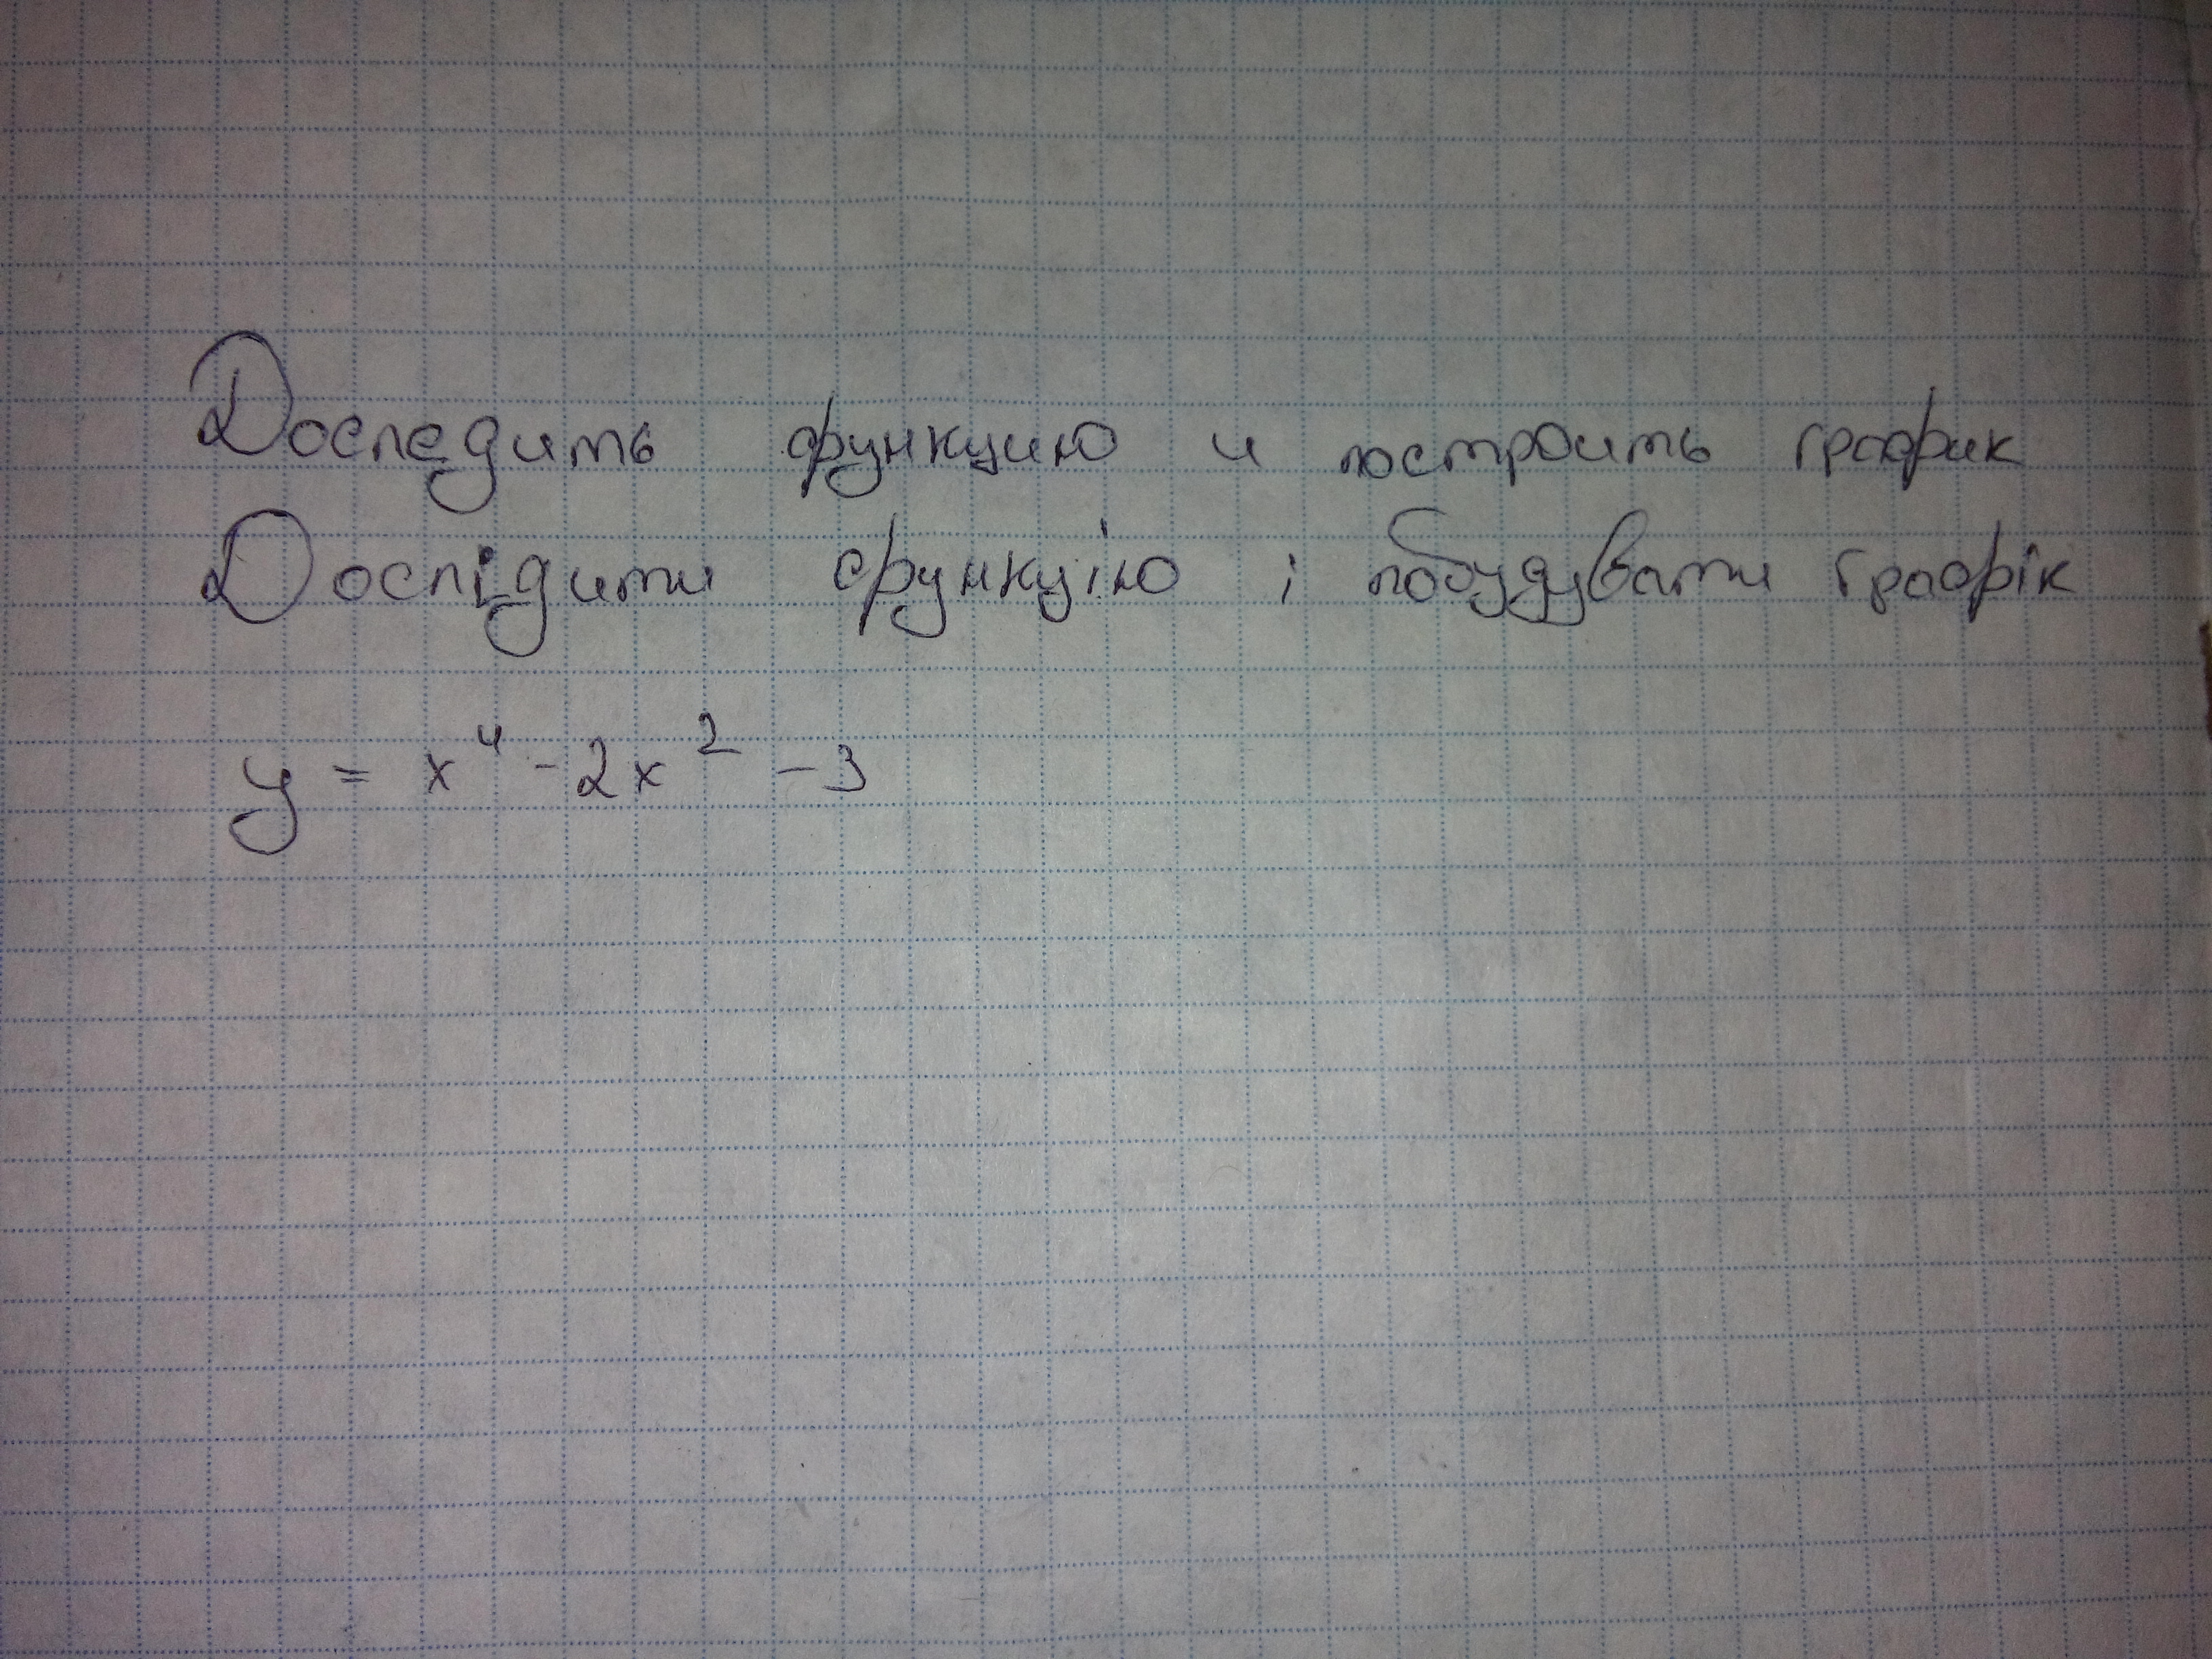 Доследить функцию и построить график
Дослідити функцію і побудувати графік
y = x⁴ - 2x² - 3